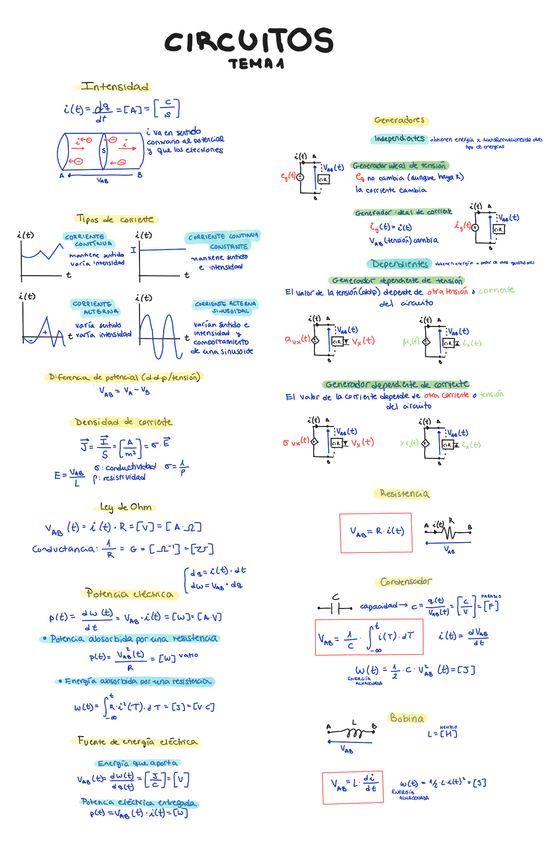 CIRCUITOS
TEMA 1
Intensidad
i(t) = dq/dt = [A] = [C/s]
i va en sentido
contrario al potencial
y que los electrones
A B
V_AB
Tipos de corriente
i(t)
t
CORRIENTE
CONTINUA
mantiene sentido
varía intensidad
i(t)
I
t
CORRIENTE CONTINUA
CONSTANTE
mantiene sentido
e intensidad
i(t)
t
CORRIENTE
ALTERNA
varía sentido
varía intensidad
i(t)
t
CORRIENTE ALTERNA
SINUSOIDAL
varían sentido e
intensidad y
comportamiento
de una sinusoide
Diferencia de potencial (d.d.p/tensión)
V_AB = V_A - V_B
Densidad de corriente
J = I/S = [A/m²] = σ · E
E = V_AB/L
σ: conductividad σ = 1/ρ
ρ: resistividad
Ley de Ohm
V_AB (t) = i(t) · R = [V] = [A·Ω]
Conductancia: 1/R = G = [Ω⁻¹] = [℧]
dq = i(t) · dt
dw = V_AB · dq
Potencia eléctrica
p(t) = dw(t)/dt = V_AB · i(t) = [W] = [A·V]
• Potencia absorbida por una resistencia
p(t) = V²_AB(t)/R = [W] vatio
• Energía absorbida por una resistencia
w(t) = ∫_-∞^t R · i²(T) · dT = [J] = [V·C]
Fuente de energía eléctrica
Energía que aporta
V_AB(t) = dw(t)/dq(t) = [J/C] = [V]
Potencia eléctrica entregada
p(t) = V_AB(t) · i(t) = [W]
Generadores
Independientes obtienen energía x transformaciones de otro
tipo de energías
Generador ideal de tensión
e_g no cambia (aunque haya R)
la corriente cambia
i(t) A
e_g(t) V_AB(t)
B
Generador ideal de corriente
i_g(t) = i(t)
V_AB (tensión) cambia
i(t) A
i_g(t) V_AB(t)
B
Dependientes
Generador dependiente de tensión
El valor de la tensión (ddp) depende de otra tensión o corriente
del circuito
i(t) A
V_AB(t)
V_x(t)
B
i(t) A
V_AB(t)
i_x(t)
B
Generador dependiente de corriente
El valor de la corriente depende de otra corriente o tensión
del circuito
i(t) A
V_AB(t)
σ V_x(t) V_x(t)
B
i(t) A
V_AB(t)
i_x(t)
B
Resistencia
V_AB = R · i(t)
A i(t) R B
V_AB
Condensador
C
capacidad → C = q(t)/V_AB(t) = [C/V] = [F] FARADIO
V_AB = 1/C · ∫_-∞^t i(T) · dT
i(t) = dV_AB/dt
W(t) = 1/2 · C · V²_AB (t) = [J]
ENERGÍA
ALMACENADA
Bobina
A L B
V_AB
HENRIO
L = [H]
V_AB = L · di/dt
W(t) = 1/2 · L · i(t)² = [J]
ENERGÍA
ALMACENADA